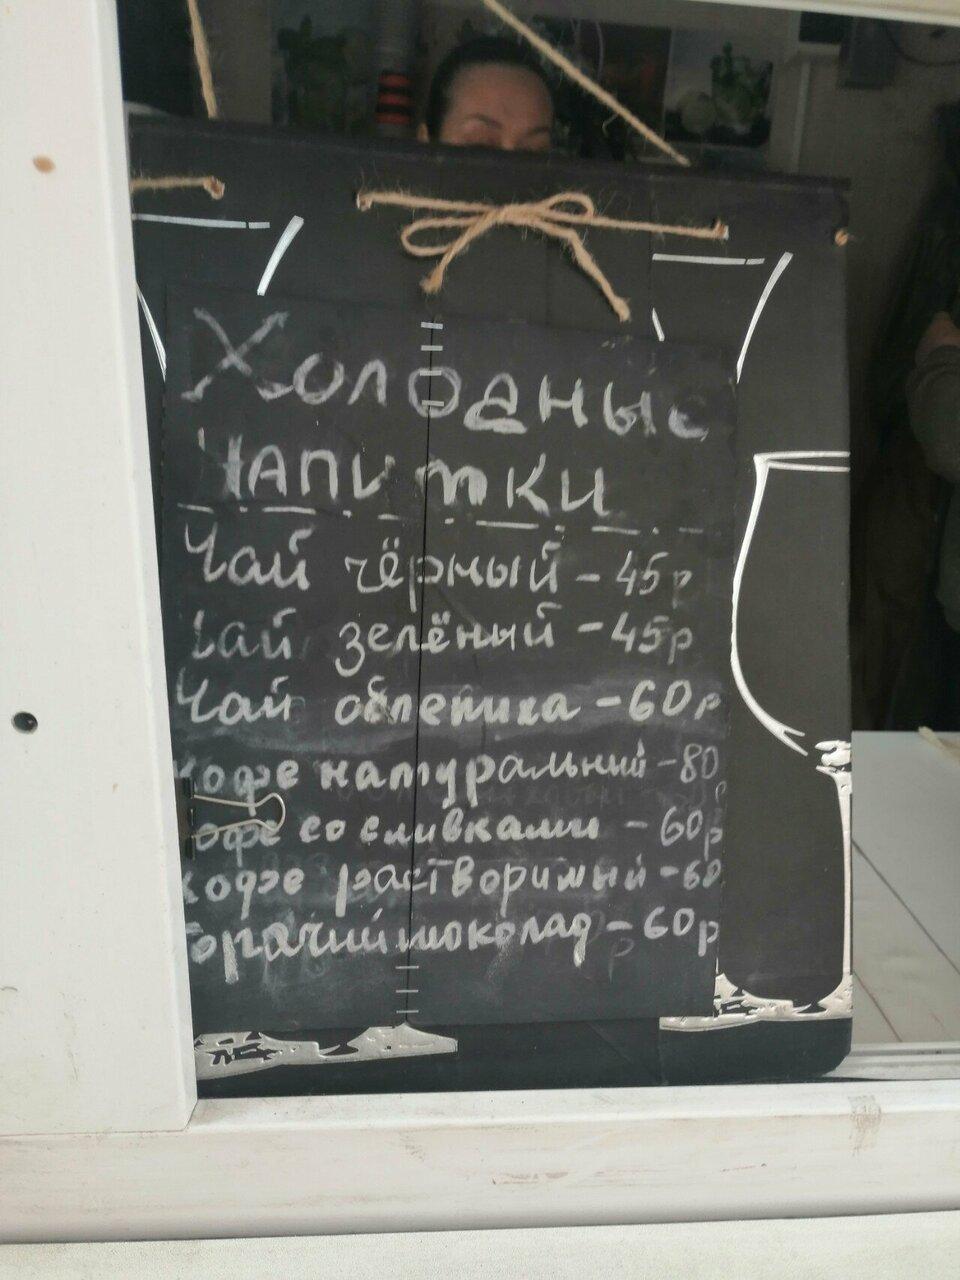 Холодные
Напитки
Чай чёрный - 45р
Чай зелёный - 45р
Чай облепиха - 60р
кофе натуральный - 80
кофе со сливками - 60р
кофе растворимый - 60
горячий шоколад - 60р